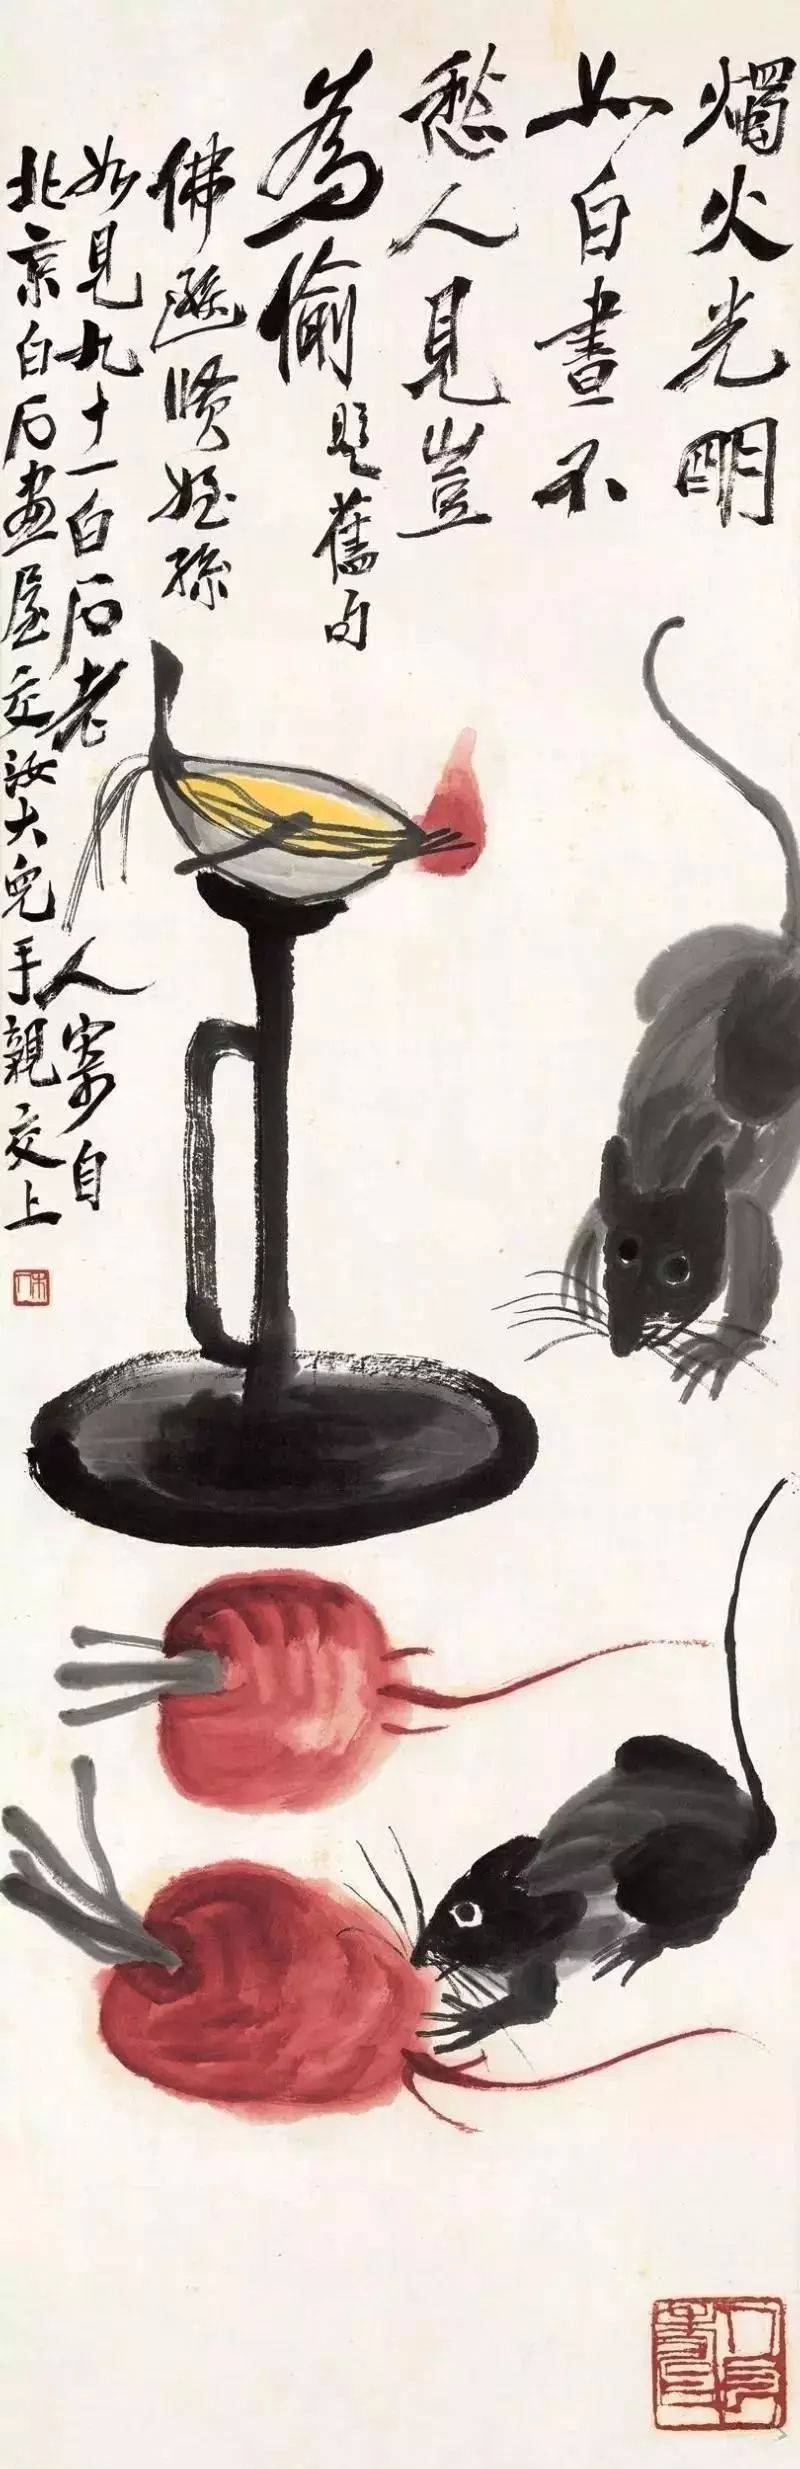 燭火光明
如白晝不
愁人見豈
為偷是舊句
佛遜賢姪孫
如見九十一白石老人寄自
北京白石畫屋交汝大兒手親交上